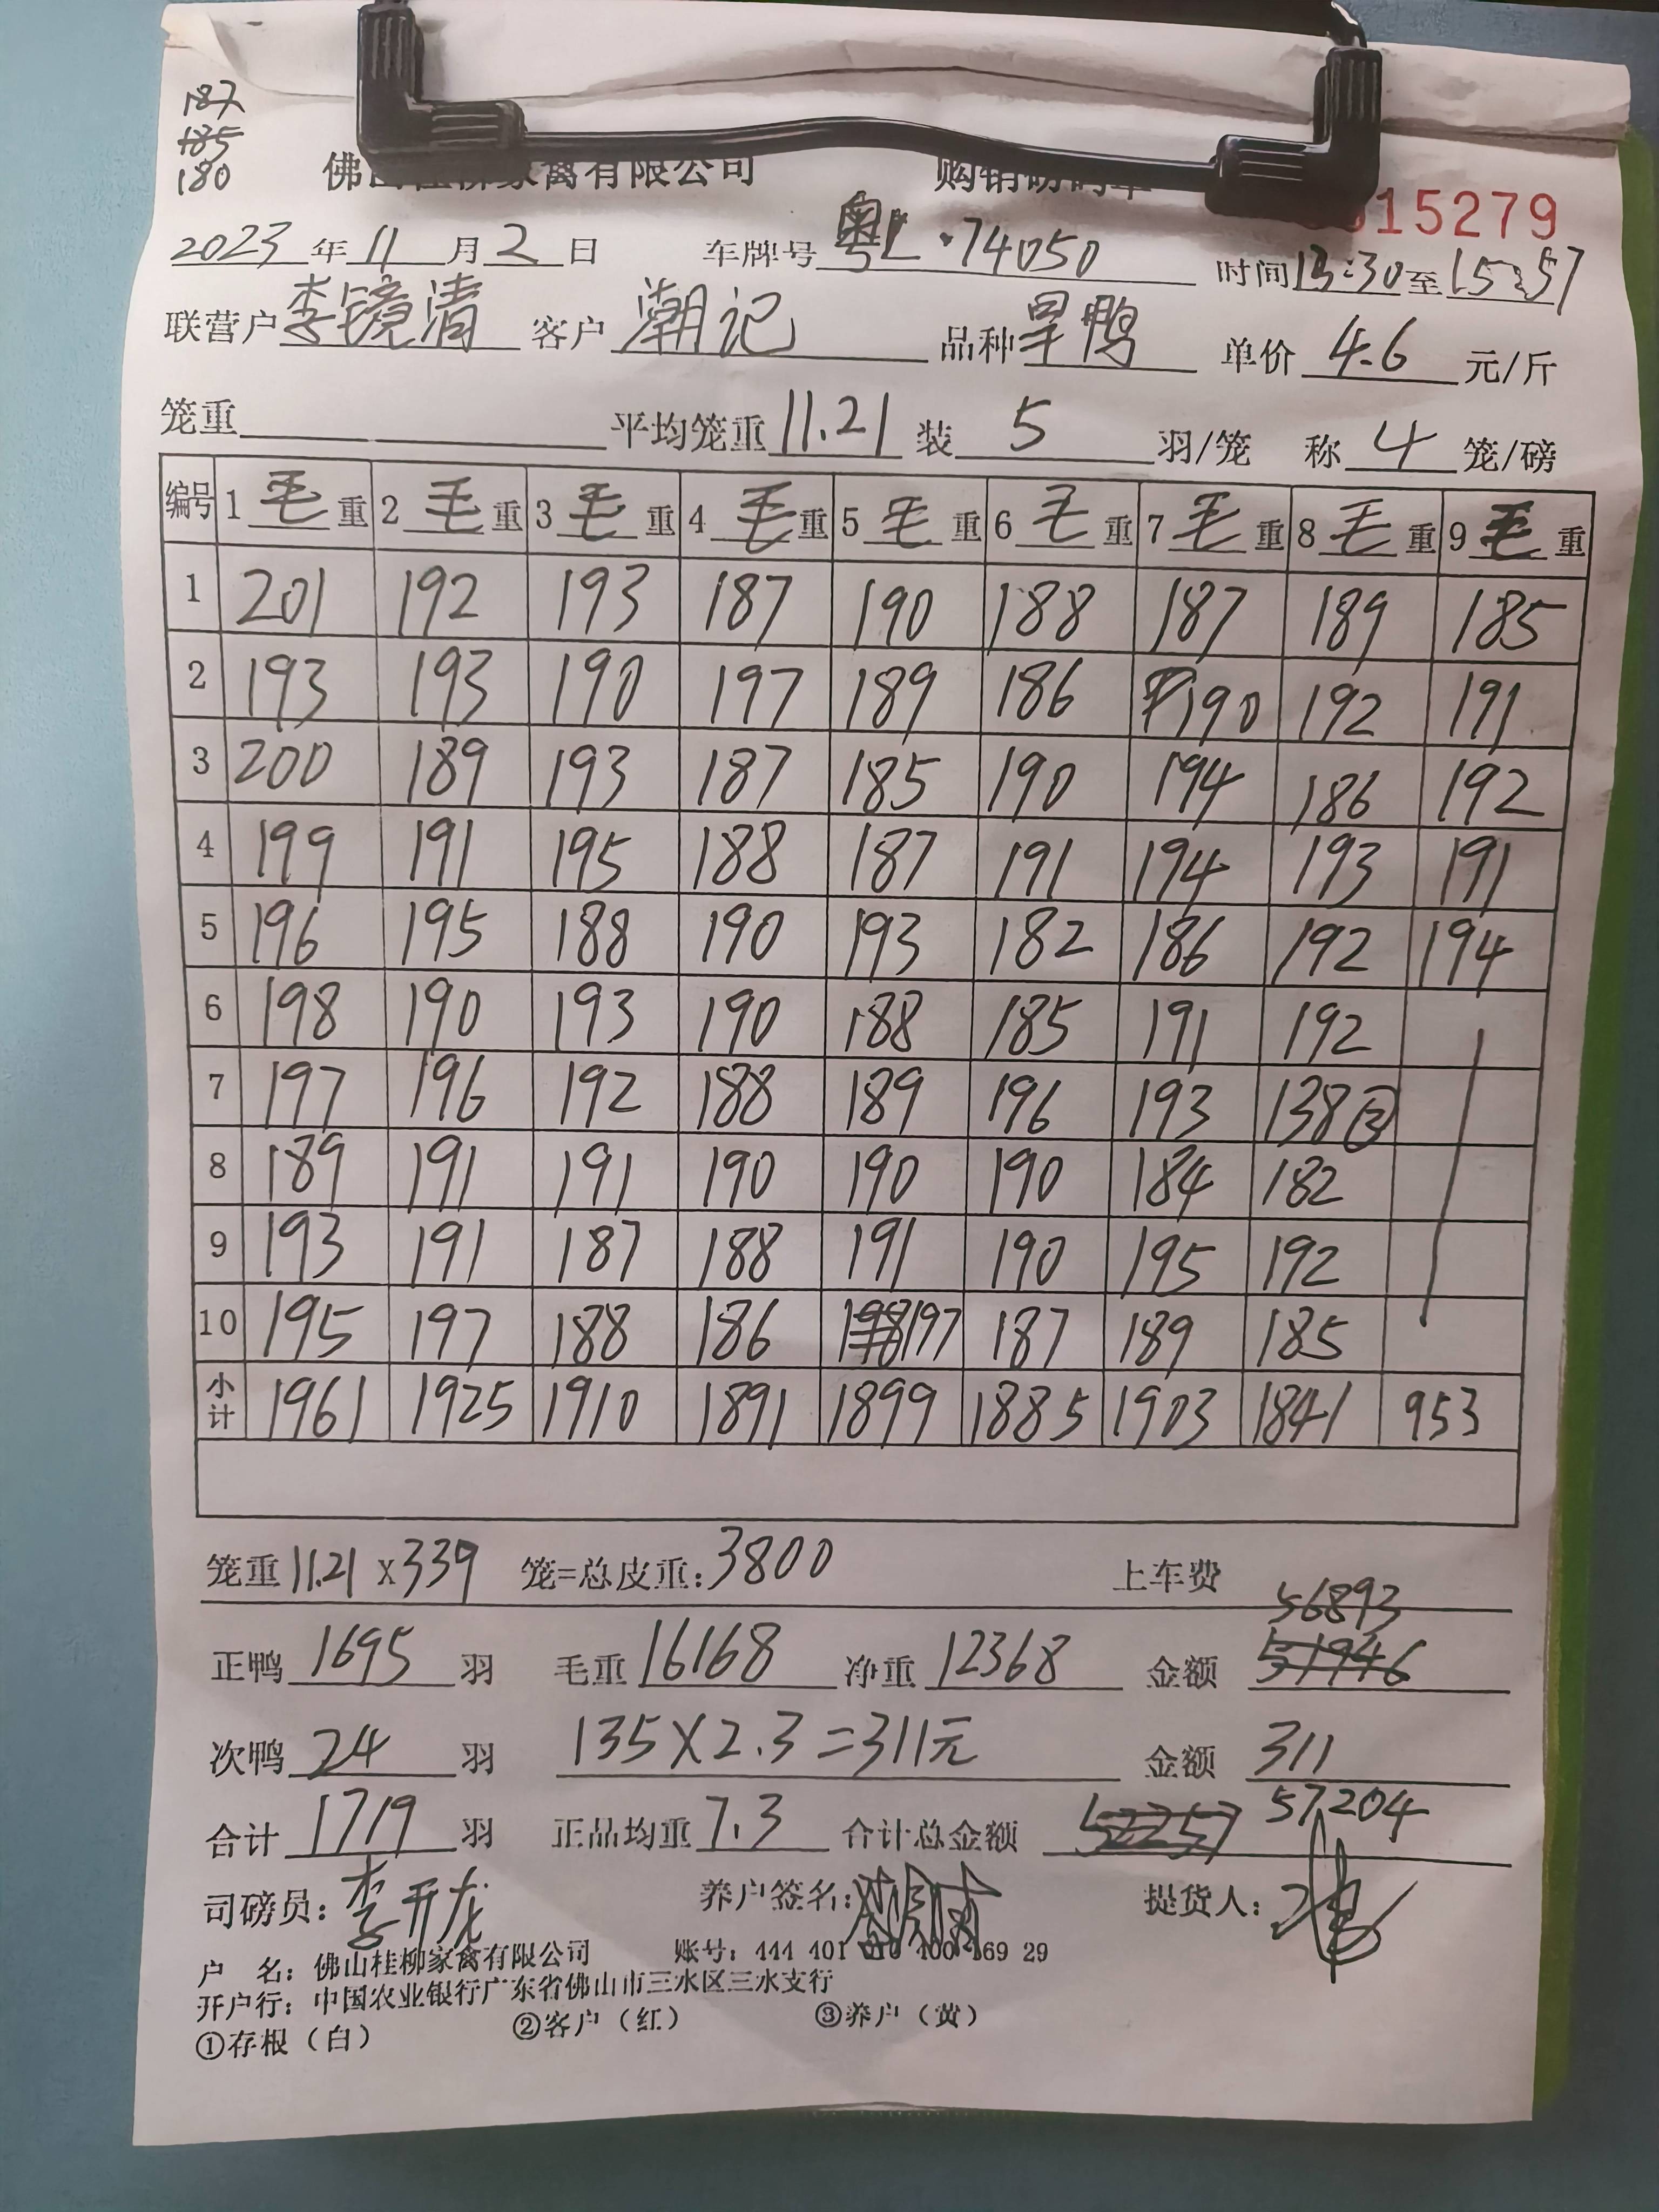 187
185
180
佛山桂柳家禽有限公司 购销磅码单
15279
2023年11月2日 车牌号粤L·74050 时间13:30至15:57
联营户李镜清 客户潮记 品种旱鸭 单价4.6元/斤
笼重 平均笼重11.21装5羽/笼 称4笼/磅
编号 1毛重 2毛重 3毛重 4毛重 5毛重 6毛重 7毛重 8毛重 9毛重
1 201 192 193 187 190 188 187 189 185
2 193 193 190 197 189 186 190 192 191
3 200 189 193 187 185 190 194 186 192
4 199 191 195 188 187 191 194 193 191
5 196 195 188 190 193 182 186 192 194
6 198 190 193 190 188 185 191 192
7 197 196 192 188 189 196 193 138③
8 189 191 191 190 190 190 184 182
9 193 191 187 188 191 190 195 192
10 195 197 188 186 198 197 187 189 185
小计 1961 1925 1910 1891 1899 1885 1903 1841 953
笼重11.21x339 笼=总皮重:3800 上车费
56893
正鸭1695羽 毛重16168 净重12368 金额51946
次鸭24羽 135X2.3=311元 金额311
合计1719羽 正品均重7.3 合计总金额52257 57204
司磅员:李开龙 养户签名: 提货人:
户 名:佛山桂柳家禽有限公司 账号:444 401 010 400 169 29
开户行:中国农业银行广东省佛山市三水区三水支行
①存根(白) ②客户(红) ③养户(黄)